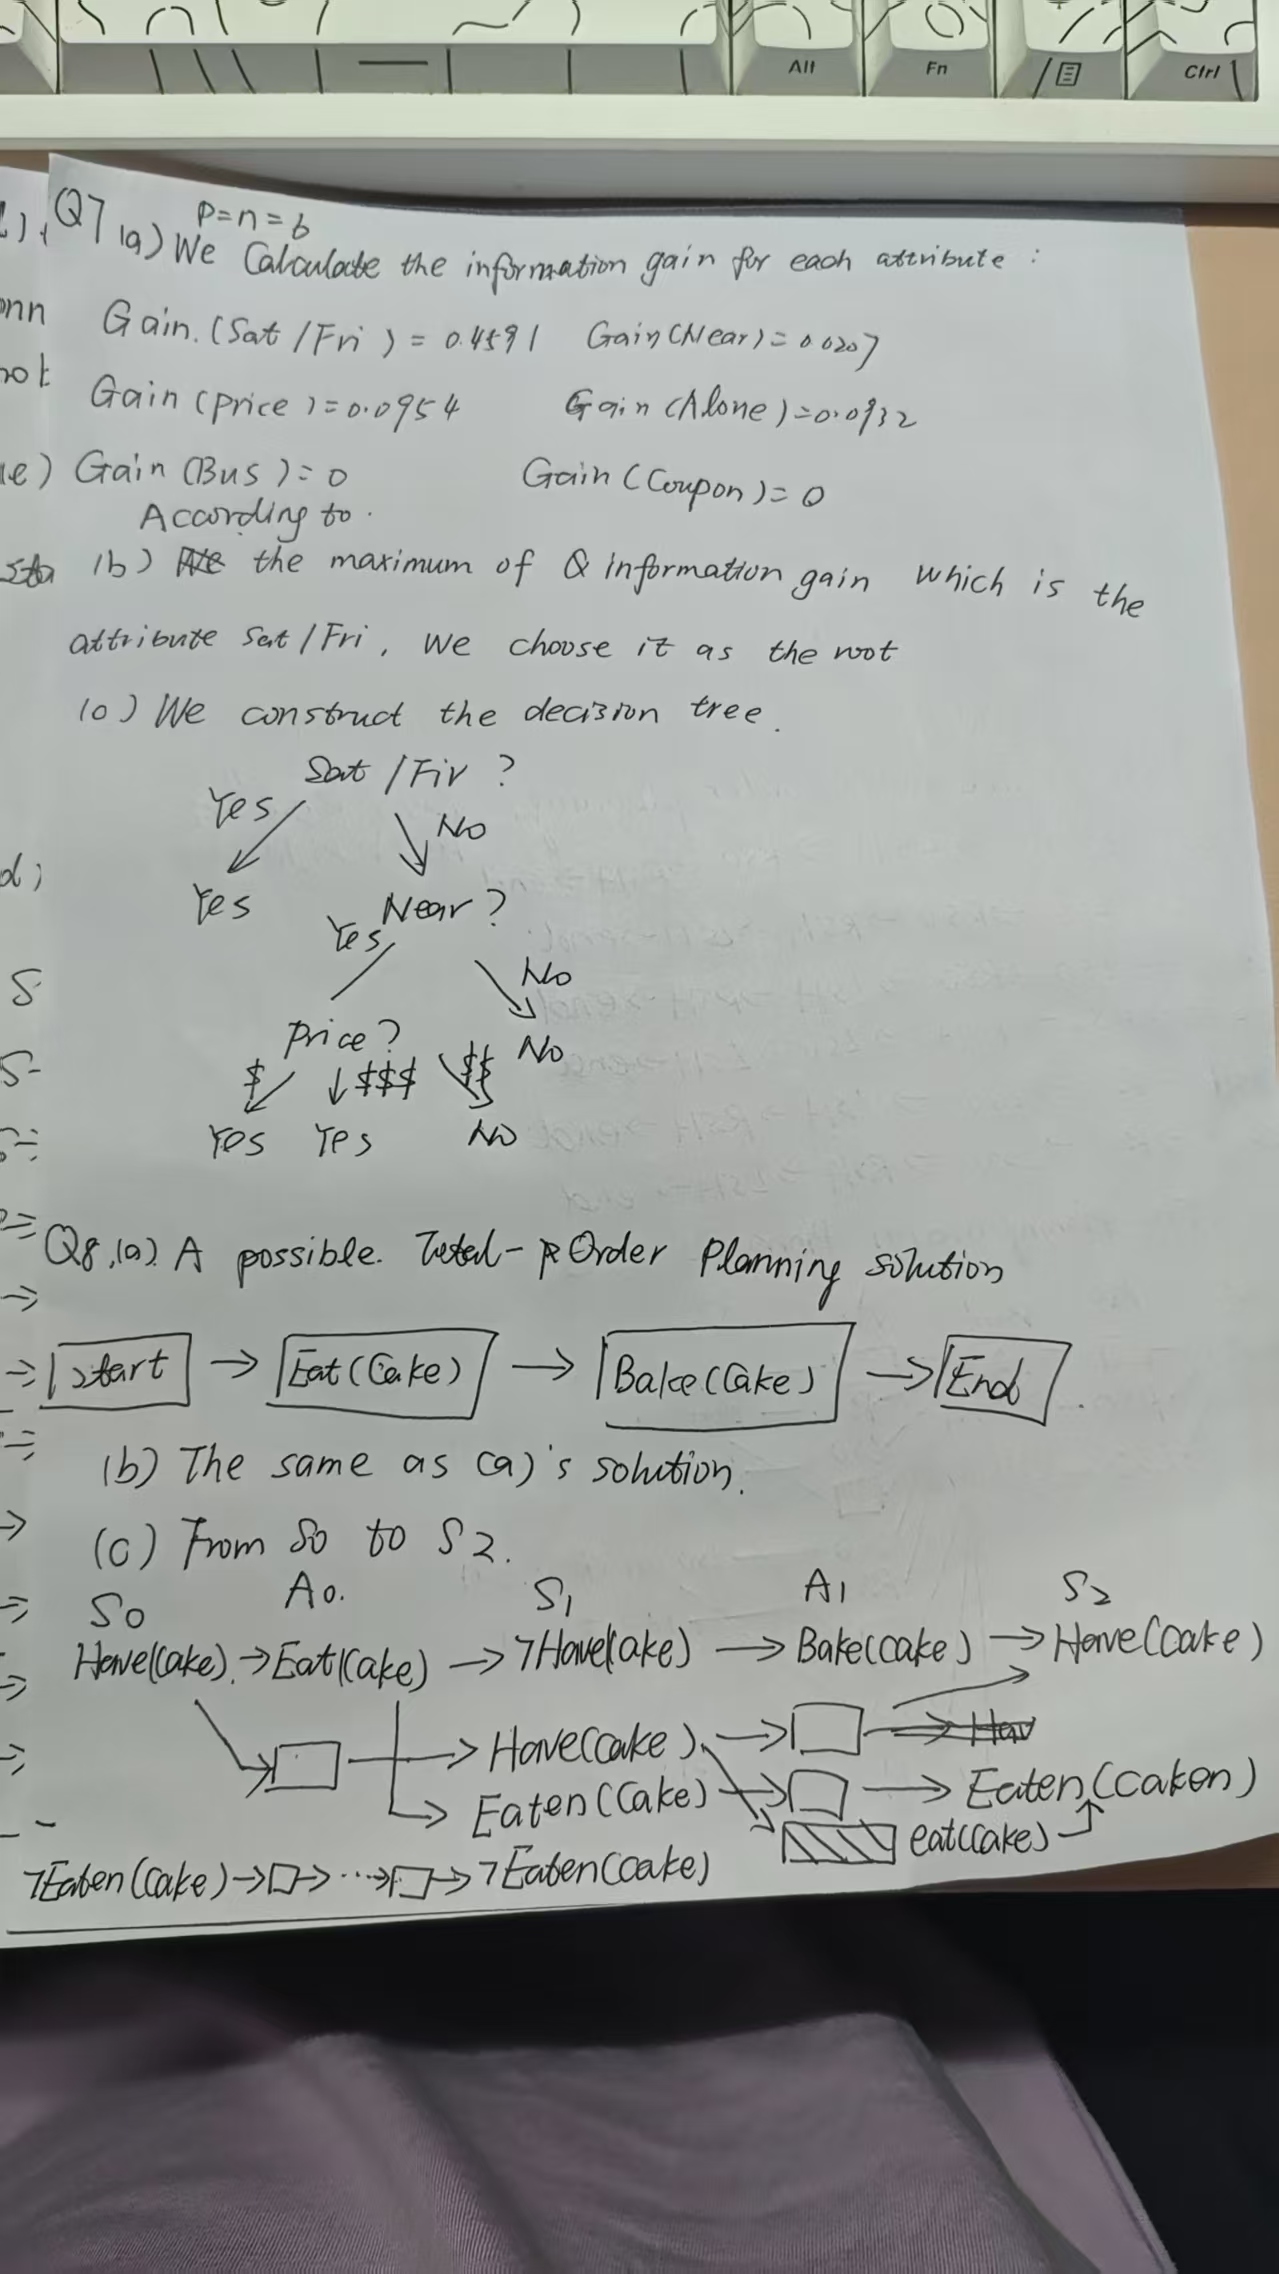 Alt Fn Ctrl
Q7 P=n=6
(a) We Calculate the information gain for each attribute :
Gain.(Sat/Fri) = 0.4591 Gain(Near)= 0.0207
Gain(price)=0.0954 Gain(Alone)=0.0932
Gain(Bus)= 0 Gain(Coupon)= 0
According to.
(b) the maximum of information gain which is the
attribute Sat/Fri, we choose it as the root
(c) We construct the decision tree.
Sat/Fir ?
Yes No
Yes Near?
Yes No
Price? No
$ $$$ $$
Yes Yes No
Q8.(a). A possible. Total- Order Planning solution
Start → Eat(Cake) → Bake(Cake) → End
(b) The same as (a)'s solution.
(c) From S0 to S2.
S0 A0. S1 A1 S2
Have(Cake). → Eat(Cake) → ¬Have(Cake) → Bake(Cake) → Have(Cake)
→ Have(Cake) → → Hav
→ Eaten(Cake) → → Eaten(Caken)
eat(Cake)
¬Eaten(Cake) → → ··· → → ¬Eaten(Cake)